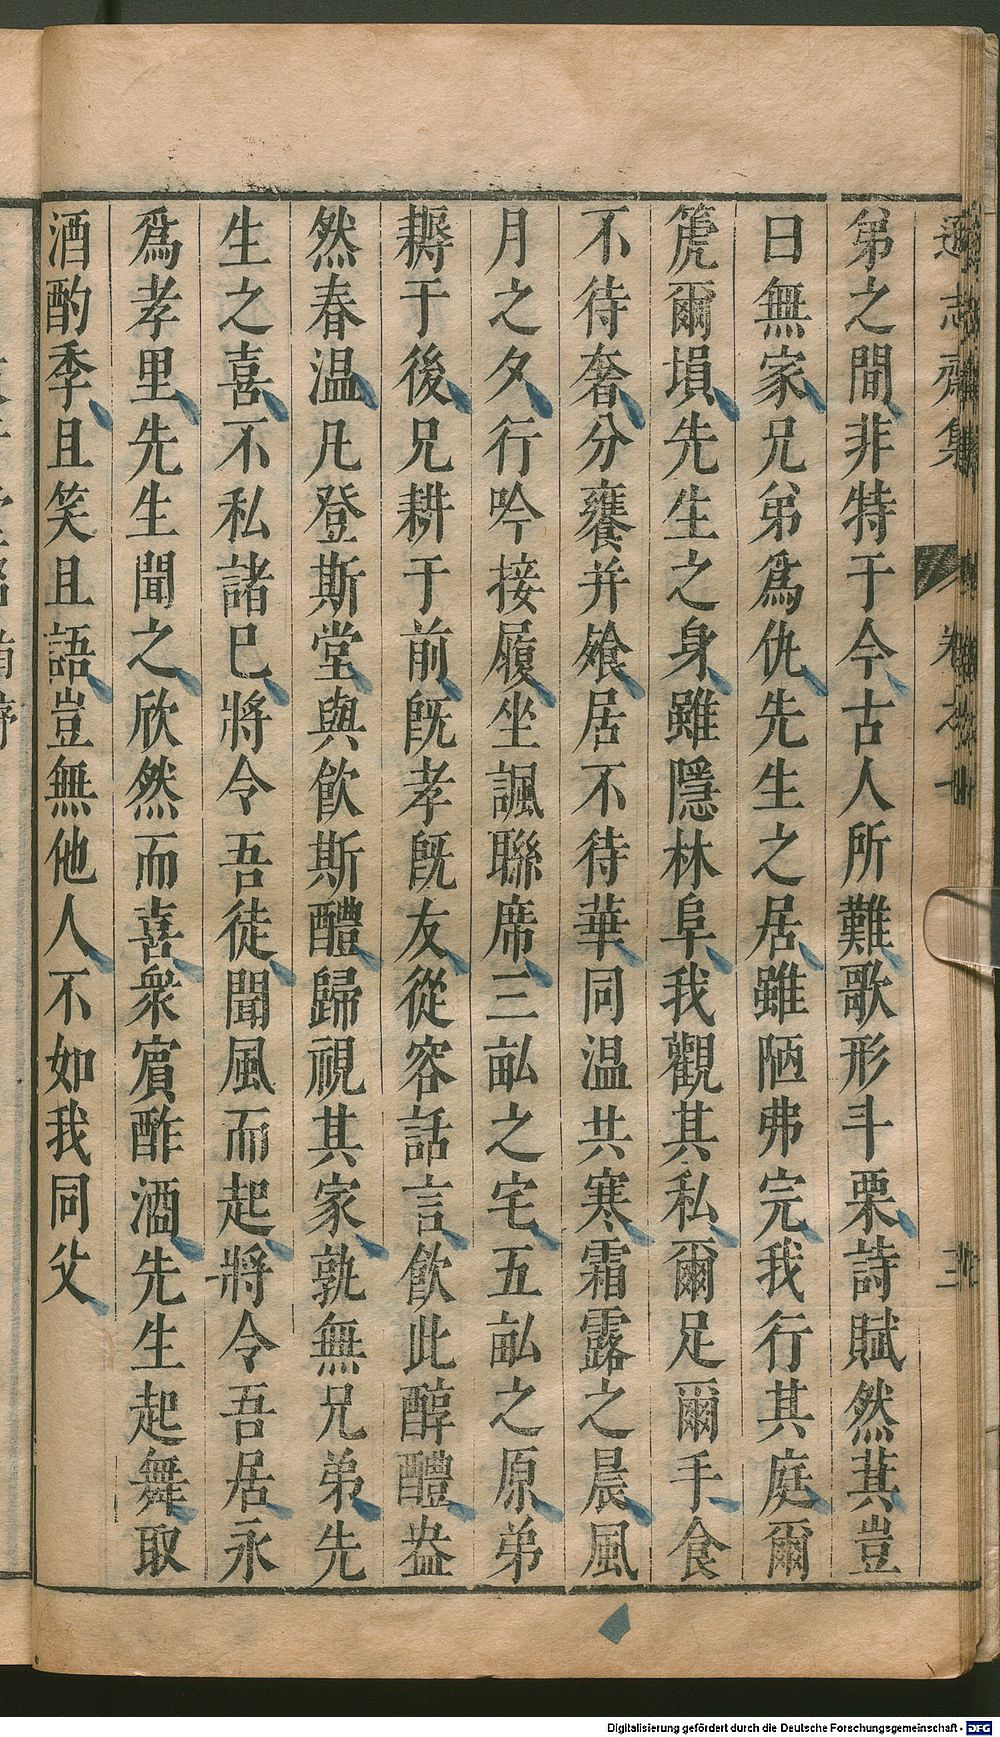 遜志齋集 卷之十 三
弟之間非特于今古人所難歌形斗粟詩賦然萁豈
曰無家兄弟爲仇先生之居雖陋弗完我行其庭爾
篪爾塤先生之身雖隱林阜我觀其私爾足爾手食
不待奢分饔并飧居不待華同温共寒霜露之晨風
月之夕行吟接履坐諷聯席三畝之宅五畝之原弟
耨于後兄耕于前旣孝旣友從容話言飮此醇醴盎
然春温凡登斯堂與飮斯醴歸視其家孰無兄弟先
生之喜不私諸巳將令吾徒聞風而起將令吾居永
爲孝里先生聞之欣然而喜衆賔酢酒先生起舞取
酒酌季且笑且語豈無他人不如我同父
Digitalisierung gefördert durch die Deutsche Forschungsgemeinschaft - DFG